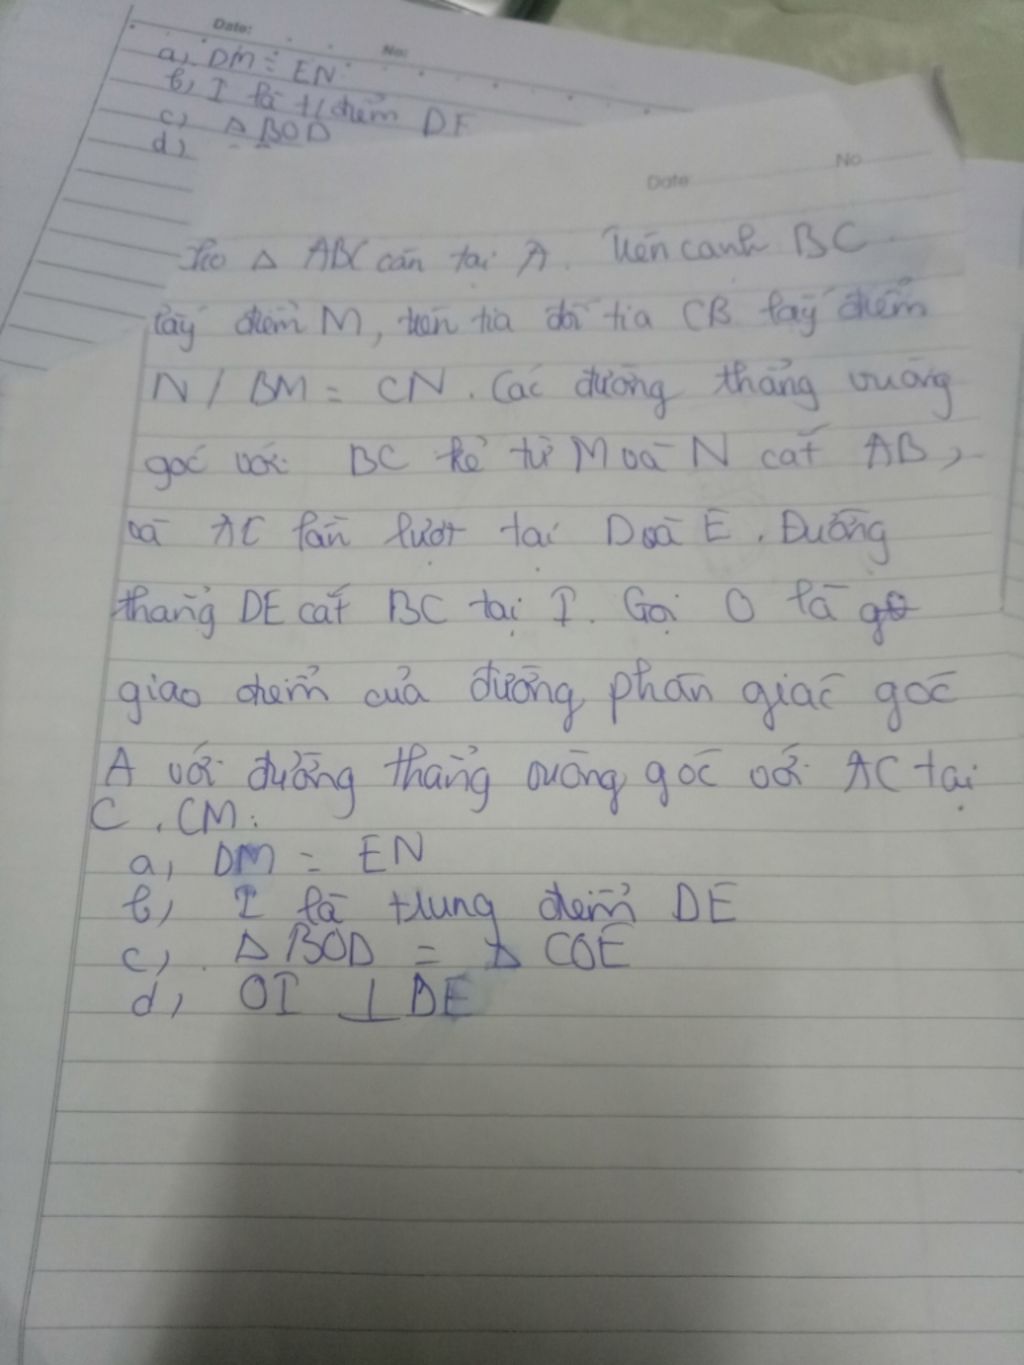 Date:
No:
a, DM = EN
b, I là tr điểm DE
c, Δ BOD
d,
Date
No
Cho Δ ABC cân tại A. Trên cạnh BC
lấy điểm M, trên tia đối tia CB lấy điểm
N / BM = CN. Các đường thẳng vuông
góc với BC kẻ từ M và N cắt AB,
và AC lần lượt tại D và E. Đường
thẳng DE cắt BC tại I. Gọi O là
giao điểm của đường phân giác góc
A với đường thẳng vuông góc với AC tại
C. CM:
a, DM = EN
b, I là trung điểm DE
c, Δ BOD = Δ COE
d, OI ⊥ DE